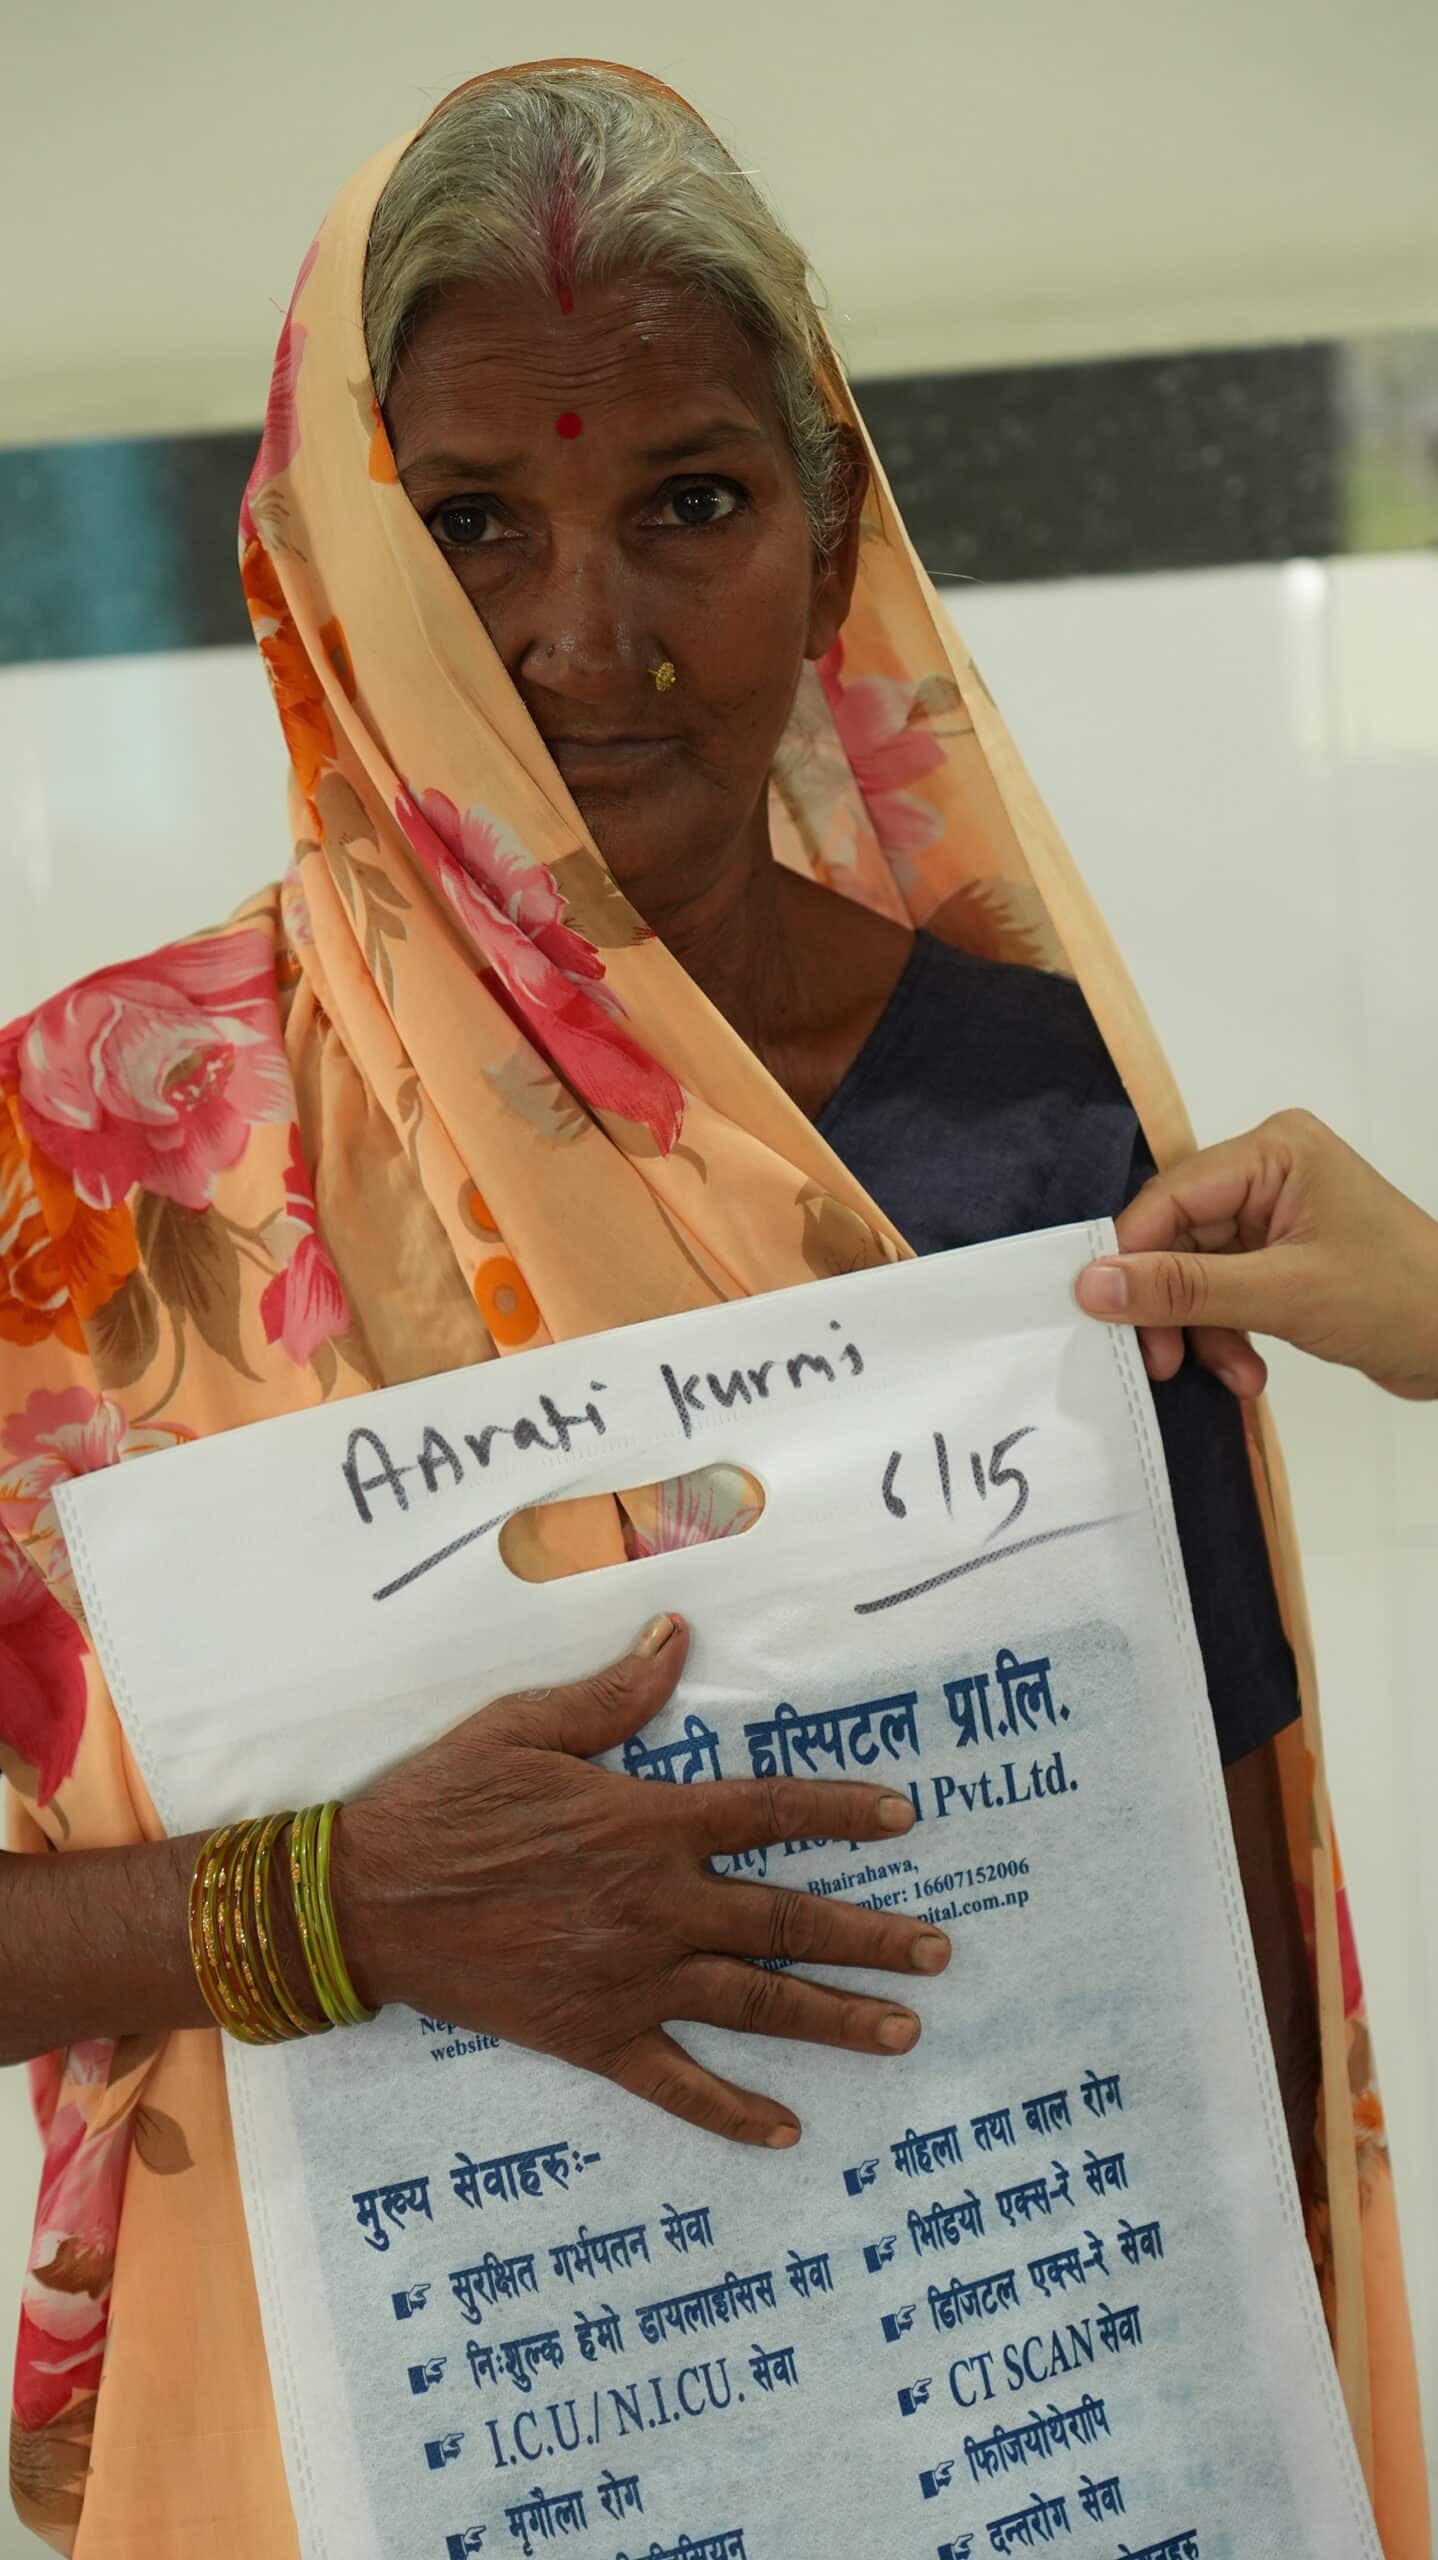 AArati Kurmi
6/15
सिटी हस्पिटल प्रा.लि.
City Pvt.Ltd.
Bhairahawa,
16607152006
website
मुख्य सेवाहरुः-
सुरक्षित गर्भपतन सेवा
निःशुल्क हेमो डायलाइसिस सेवा
I.C.U./N.I.CU. सेवा
मृगौला रोग
महिला तथा बाल रोग
भिडियो एक्स-रे सेवा
डिजिटल एक्स-रे सेवा
CT SCAN सेवा
फिजियोथेरापि
दन्तरोग सेवा